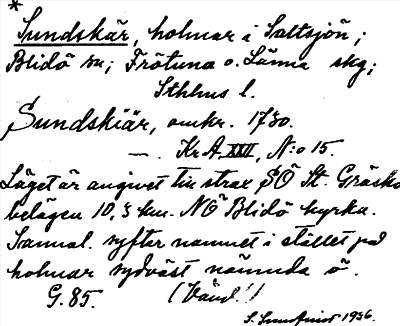 *
Sundskär, holmar i Saltsjön;
Blidö sn; Frötuna o. Länna skg;
Sthlms l.
Sundskiär, omkr. 1730.
—. Kr.A. XXII, N:o 15.
Läget är angivet till strax SÖ St. Gräskö
belägen 10,3 km. NÖ Blidö kyrka.
Sannol. syftar namnet i stället på
holmar sydväst nämnda ö.
G. 85. (Vänd!)
1936.